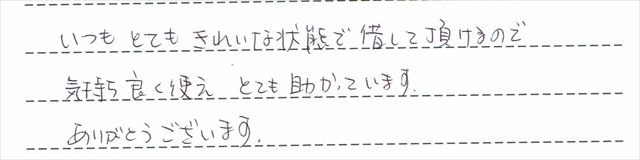 いつも とても きれいな状態で 借して頂けるので
気持ち良く使え とても助かっています.
ありがとうございます.